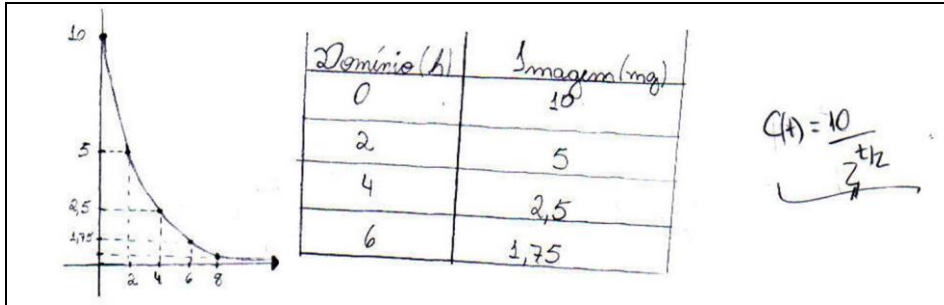 10
5
2,5
1,75
2 4 6 8
Domínio (h) Imagem (mg)
0 10
2 5
4 2,5
6 1,75
C(t) = 10
2^t/2